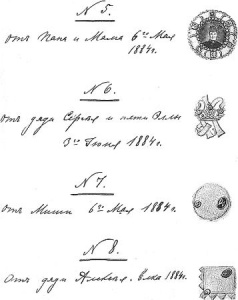 N 5.
отъ Папа и Мама 6го Мая
1884г.
N 6.
отъ дяди Сергѣя и тети Эллы
3го Іюня 1884г.
N 7.
отъ Миши 6го Мая 1884г.
N 8.
Отъ дяди Алексѣя. елка 1884г.